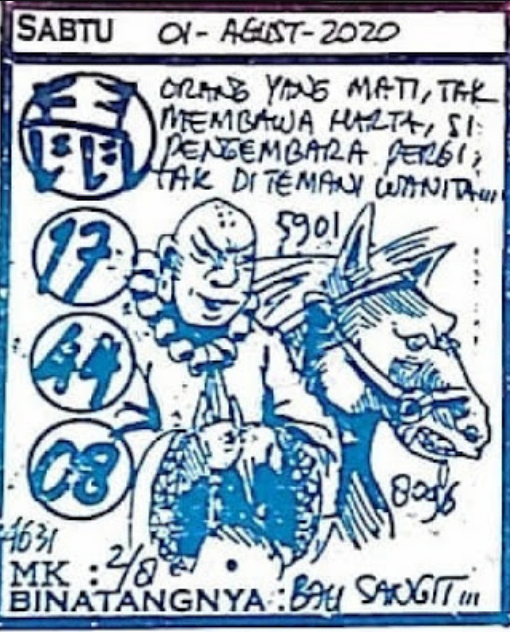 SABTU 01-AGUST-2020
ORANG YANG MATI, TAK
MEMBAWA HARTA, SI
PENGEMBARA PERGI,
TAK DITEMANI WANITA...
17
5901
44
08
8096
4631
MK : 2/8
BINATANGNYA : BAU SANGIT...